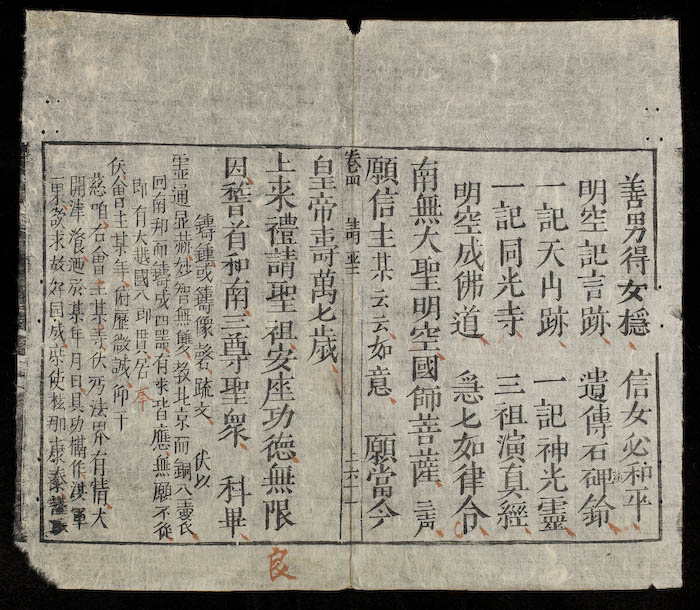 善男得女穩 信女必和平
明空記言跡 遺傳石碑
一記天內跡 一記神光靈
一記同光寺 三祖演真經
明空成佛道 急七如律令
南無大聖明空國師菩薩 三声
願信主某云云如意 願當今
卷四 上六
皇帝壽萬七歲
上来禮請聖祖安座功德無限
因稽首和南三尊聖衆 科畢
鑄鍾或鑄像 疏文 伏以
通显 妙智無雙教北京而銅
囘南邦而鑄成四器有来皆應無願不從
即有大越國 即貫
會主某年 微誠仰干
右會主某等伏丐法界有情大
開津濟 於某年月日具功
良